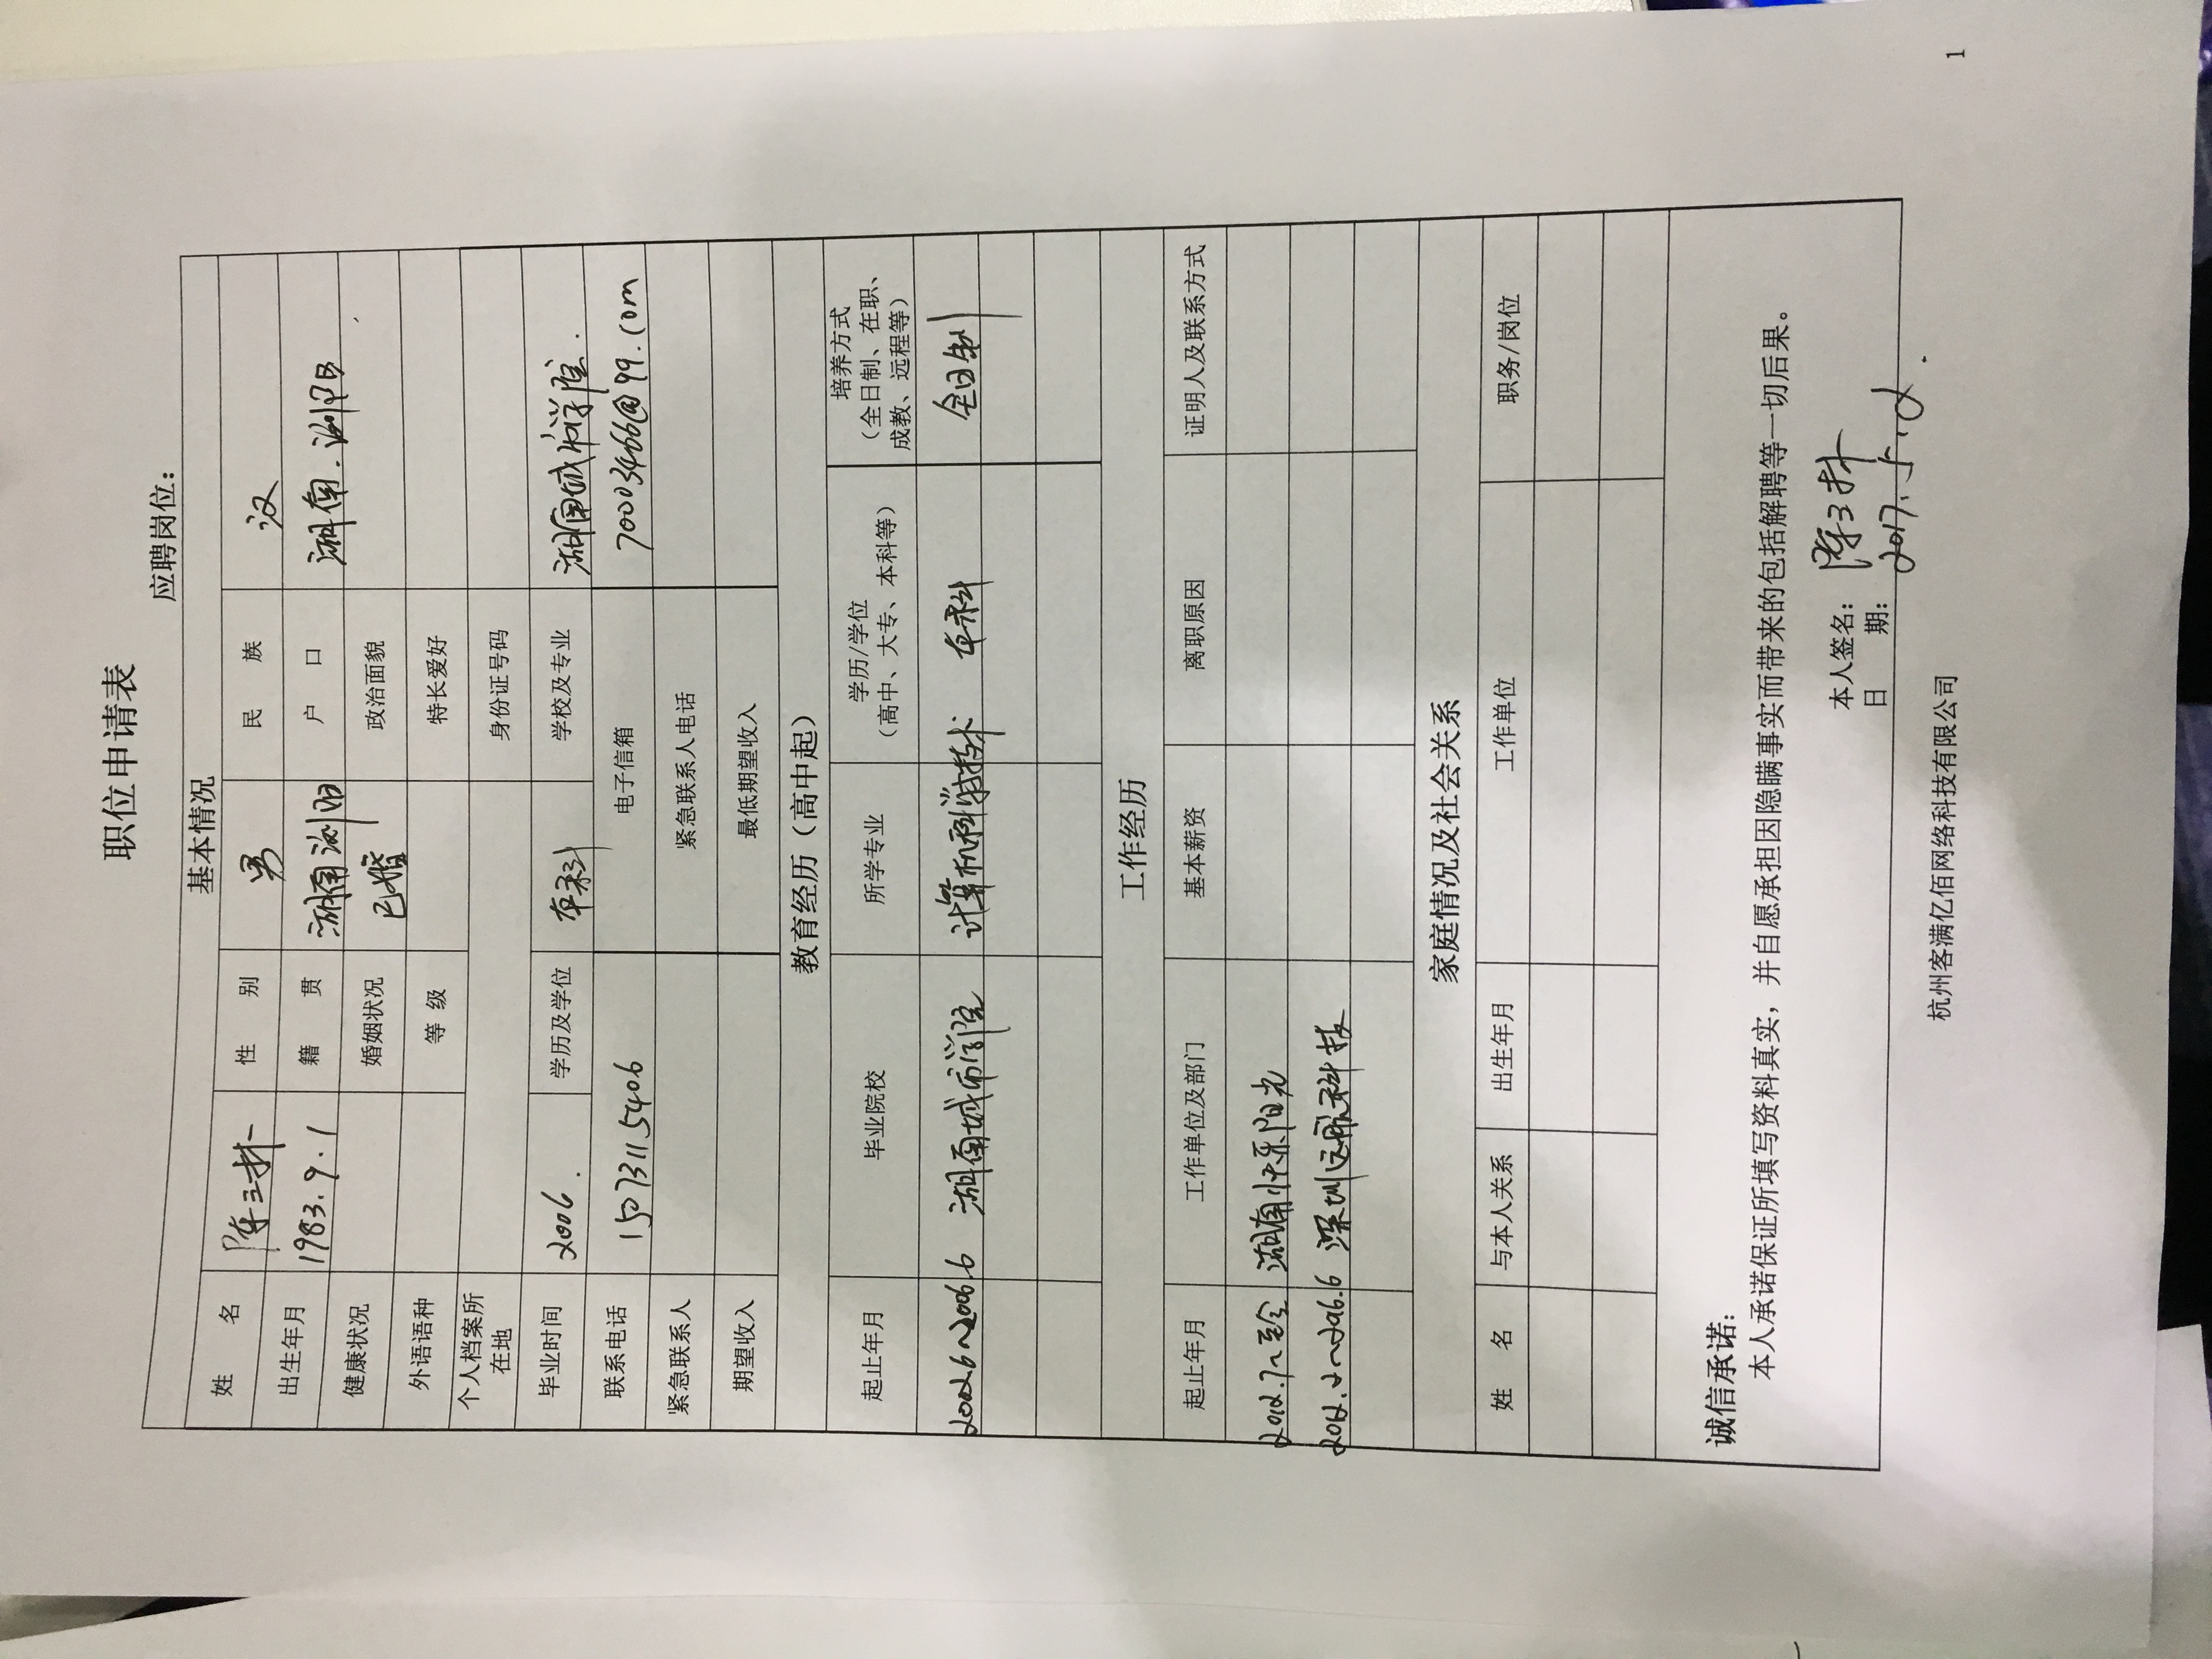 职位申请表
应聘岗位：
基本情况
姓 名 陈三林 性 别 男 民 族 汉
出生年月 1983.9.1 籍 贯 湖南浏阳 户 口 湖南.浏阳
健康状况 婚姻状况 已婚 政治面貌
外语语种 等 级 特长爱好
个人档案所
在地 身份证号码
毕业时间 2006. 学历及学位 本科 学校及专业 湖南城市学院.
联系电话 15073115406 电子信箱 70003466@99.com
紧急联系人 紧急联系人电话
期望收入 最低期望收入
教育经历（高中起）
起止年月 毕业院校 所学专业 学历/学位
（高中、大专、本科等） 培养方式
（全日制、在职、
成教、远程等）
2002.6~2006.6 湖南城市学院 计算机科学与技术 本科 全日制
工作经历
起止年月 工作单位及部门 基本薪资 离职原因 证明人及联系方式
2012.7~至今 湖南快乐阳光
深圳远航科技
家庭情况及社会关系
姓 名 与本人关系 出生年月 工作单位 职务/岗位
诚信承诺：
本人承诺保证所填写资料真实，并自愿承担因隐瞒事实而带来的包括解聘等一切后果。
本人签名： 陈三林
日 期： 2017.5.2.
杭州客满亿佰网络科技有限公司
1